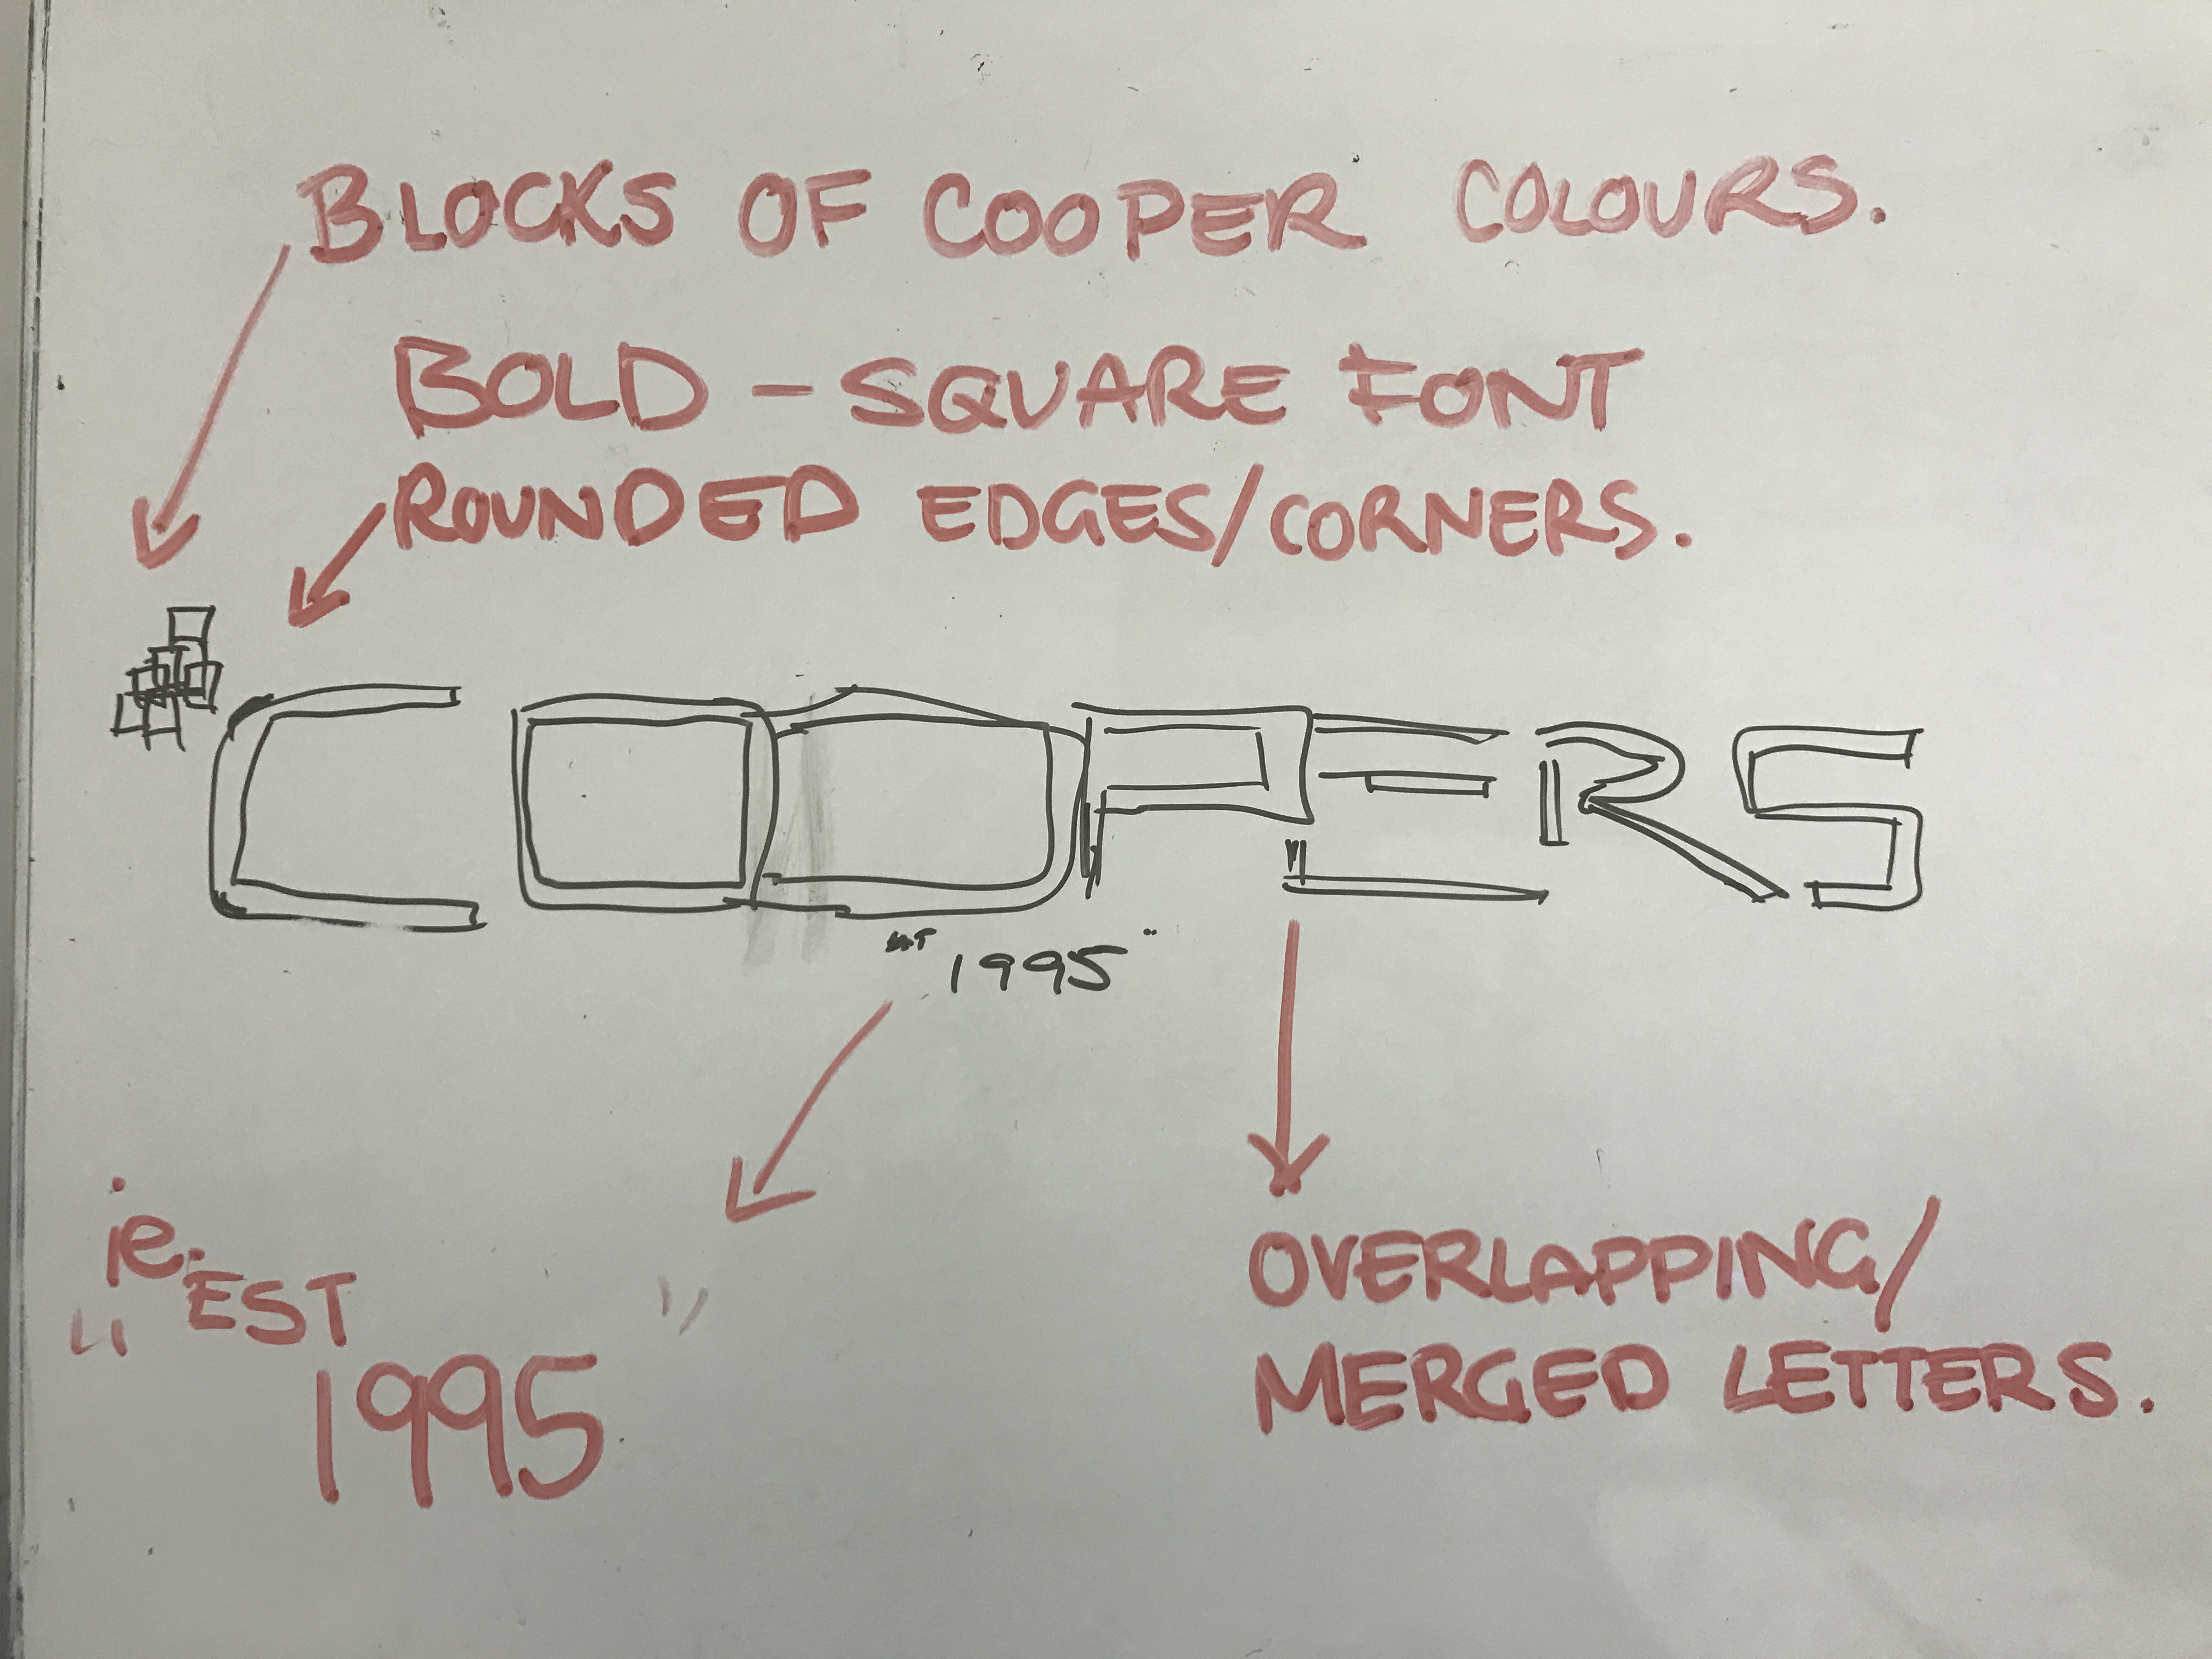 BLOCKS OF COOPER COLOURS.
BOLD - SQUARE FONT
ROUNDED EDGES/CORNERS.
COOPERS
"EST 1995"
ie.
"EST
1995"
OVERLAPPING/
MERGED LETTERS.